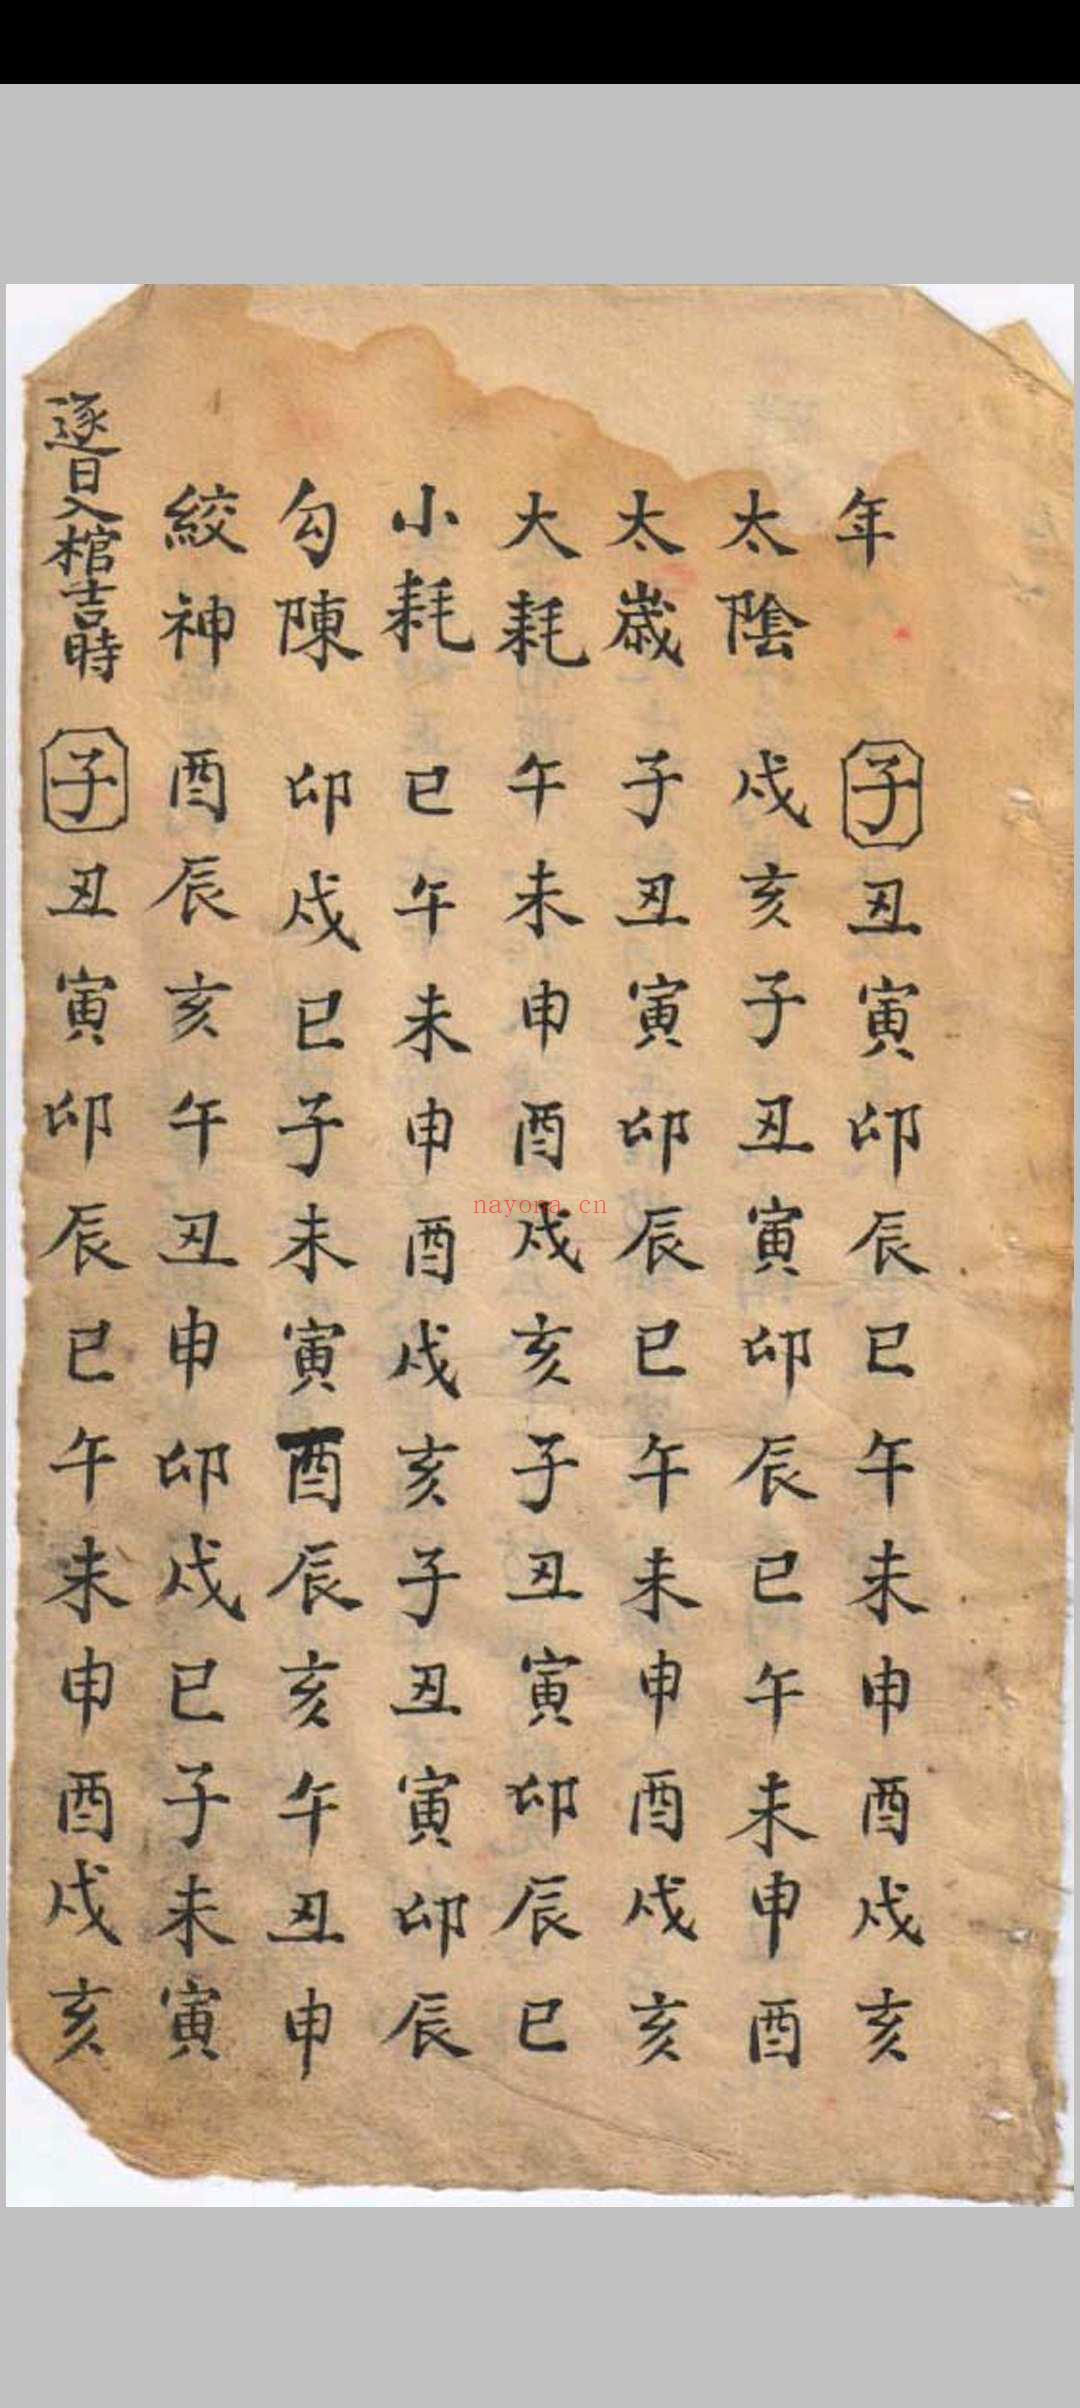 年 子丑寅卯辰巳午未申酉戌亥
太陰 戌亥子丑寅卯辰巳午未申酉
太歲 子丑寅卯辰巳午未申酉戌亥
大耗 午未申酉戌亥子丑寅卯辰巳
小耗 巳午未申酉戌亥子丑寅卯辰
勾陳 卯戌巳子未寅酉辰亥午丑申
絞神 酉辰亥午丑申卯戌巳子未寅
逐日入棺吉時 子丑寅卯辰巳午未申酉戌亥
nayona.cn